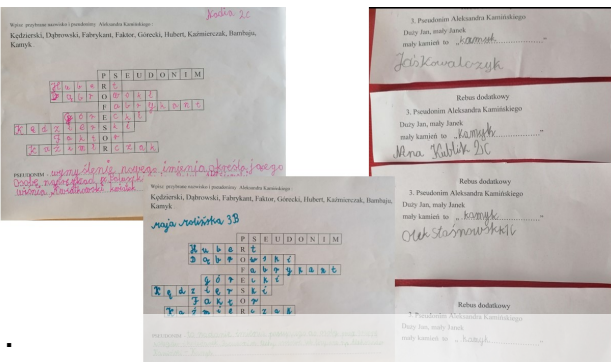 Nadia 2c
Wpisz przybrane nazwisko i pseudonimy Aleksandra Kamińskiego :
Kędzierski, Dąbrowski, Fabrykant, Faktor, Górecki, Hubert, Kaźmierczak, Bambaju,
Kamyk
P S E U D O N I M
H u b e R t
D ą b r O w s k i
F a b r y k a n t
g ó r E c k i
K ę d z i e r S k i
F a k t O r
K a ź m i e R c z a k
PSEUDONIM - wymyślenie nowego imienia
osobę
Wpisz przybrane nazwisko i pseudonimy Aleksandra Kamińskiego :
Kędzierski, Dąbrowski, Fabrykant, Faktor, Górecki, Hubert, Kaźmierczak, Bambaju,
Kamyk
Maja Rolińska 3B
P S E U D O N I M
H u b e R t
D ą b r O w s k i
F a b r y k a n t
g ó r E c k i
K ę d z i e r S k i
F a k t O r
K a ź m i e R c z a k
PSEUDONIM
3. Pseudonim Aleksandra Kamińskiego
Duży Jan, mały Janek
mały kamień to „kamyk..............."
Jaśkowalczyk
Rebus dodatkowy
3. Pseudonim Aleksandra Kamińskiego
Duży Jan, mały Janek
mały kamień to „kamyk..............."
Nina Kublik 2C
Rebus dodatkowy
3. Pseudonim Aleksandra Kamińskiego
Duży Jan, mały Janek
mały kamień to „kamyk..............."
Olek
Rebus dodatkowy
3. Pseudonim Aleksandra Kamińskiego
Duży Jan, mały Janek
mały kamień to „kamyk..............."